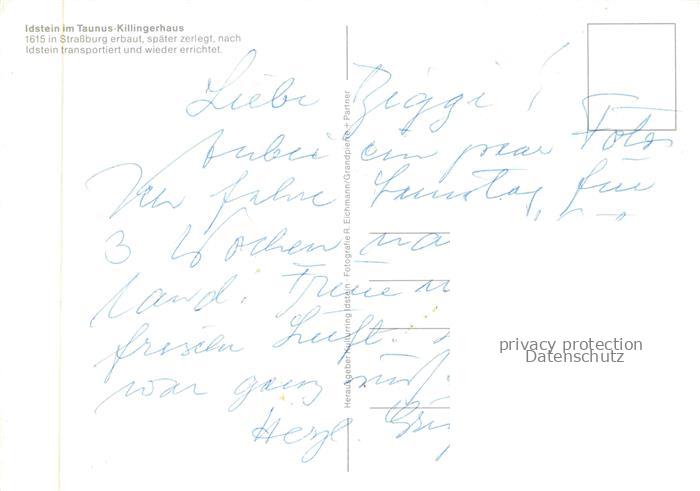 Idstein im Taunus-Killingerhaus
1615 in Straßburg erbaut, später zerlegt, nach
Idstein transportiert und wieder errichtet.
Liebe Biggi!
Anbei ein paar Fotos
fahre Samstag für
3 Wochen na
land. Freue m
frischen Luft.
war ganz
Herzl. Grü
Herausgeber Kulturring Idstein Fotografie R. Eichmann/Grandpierre + Partner
privacy protection
Datenschutz